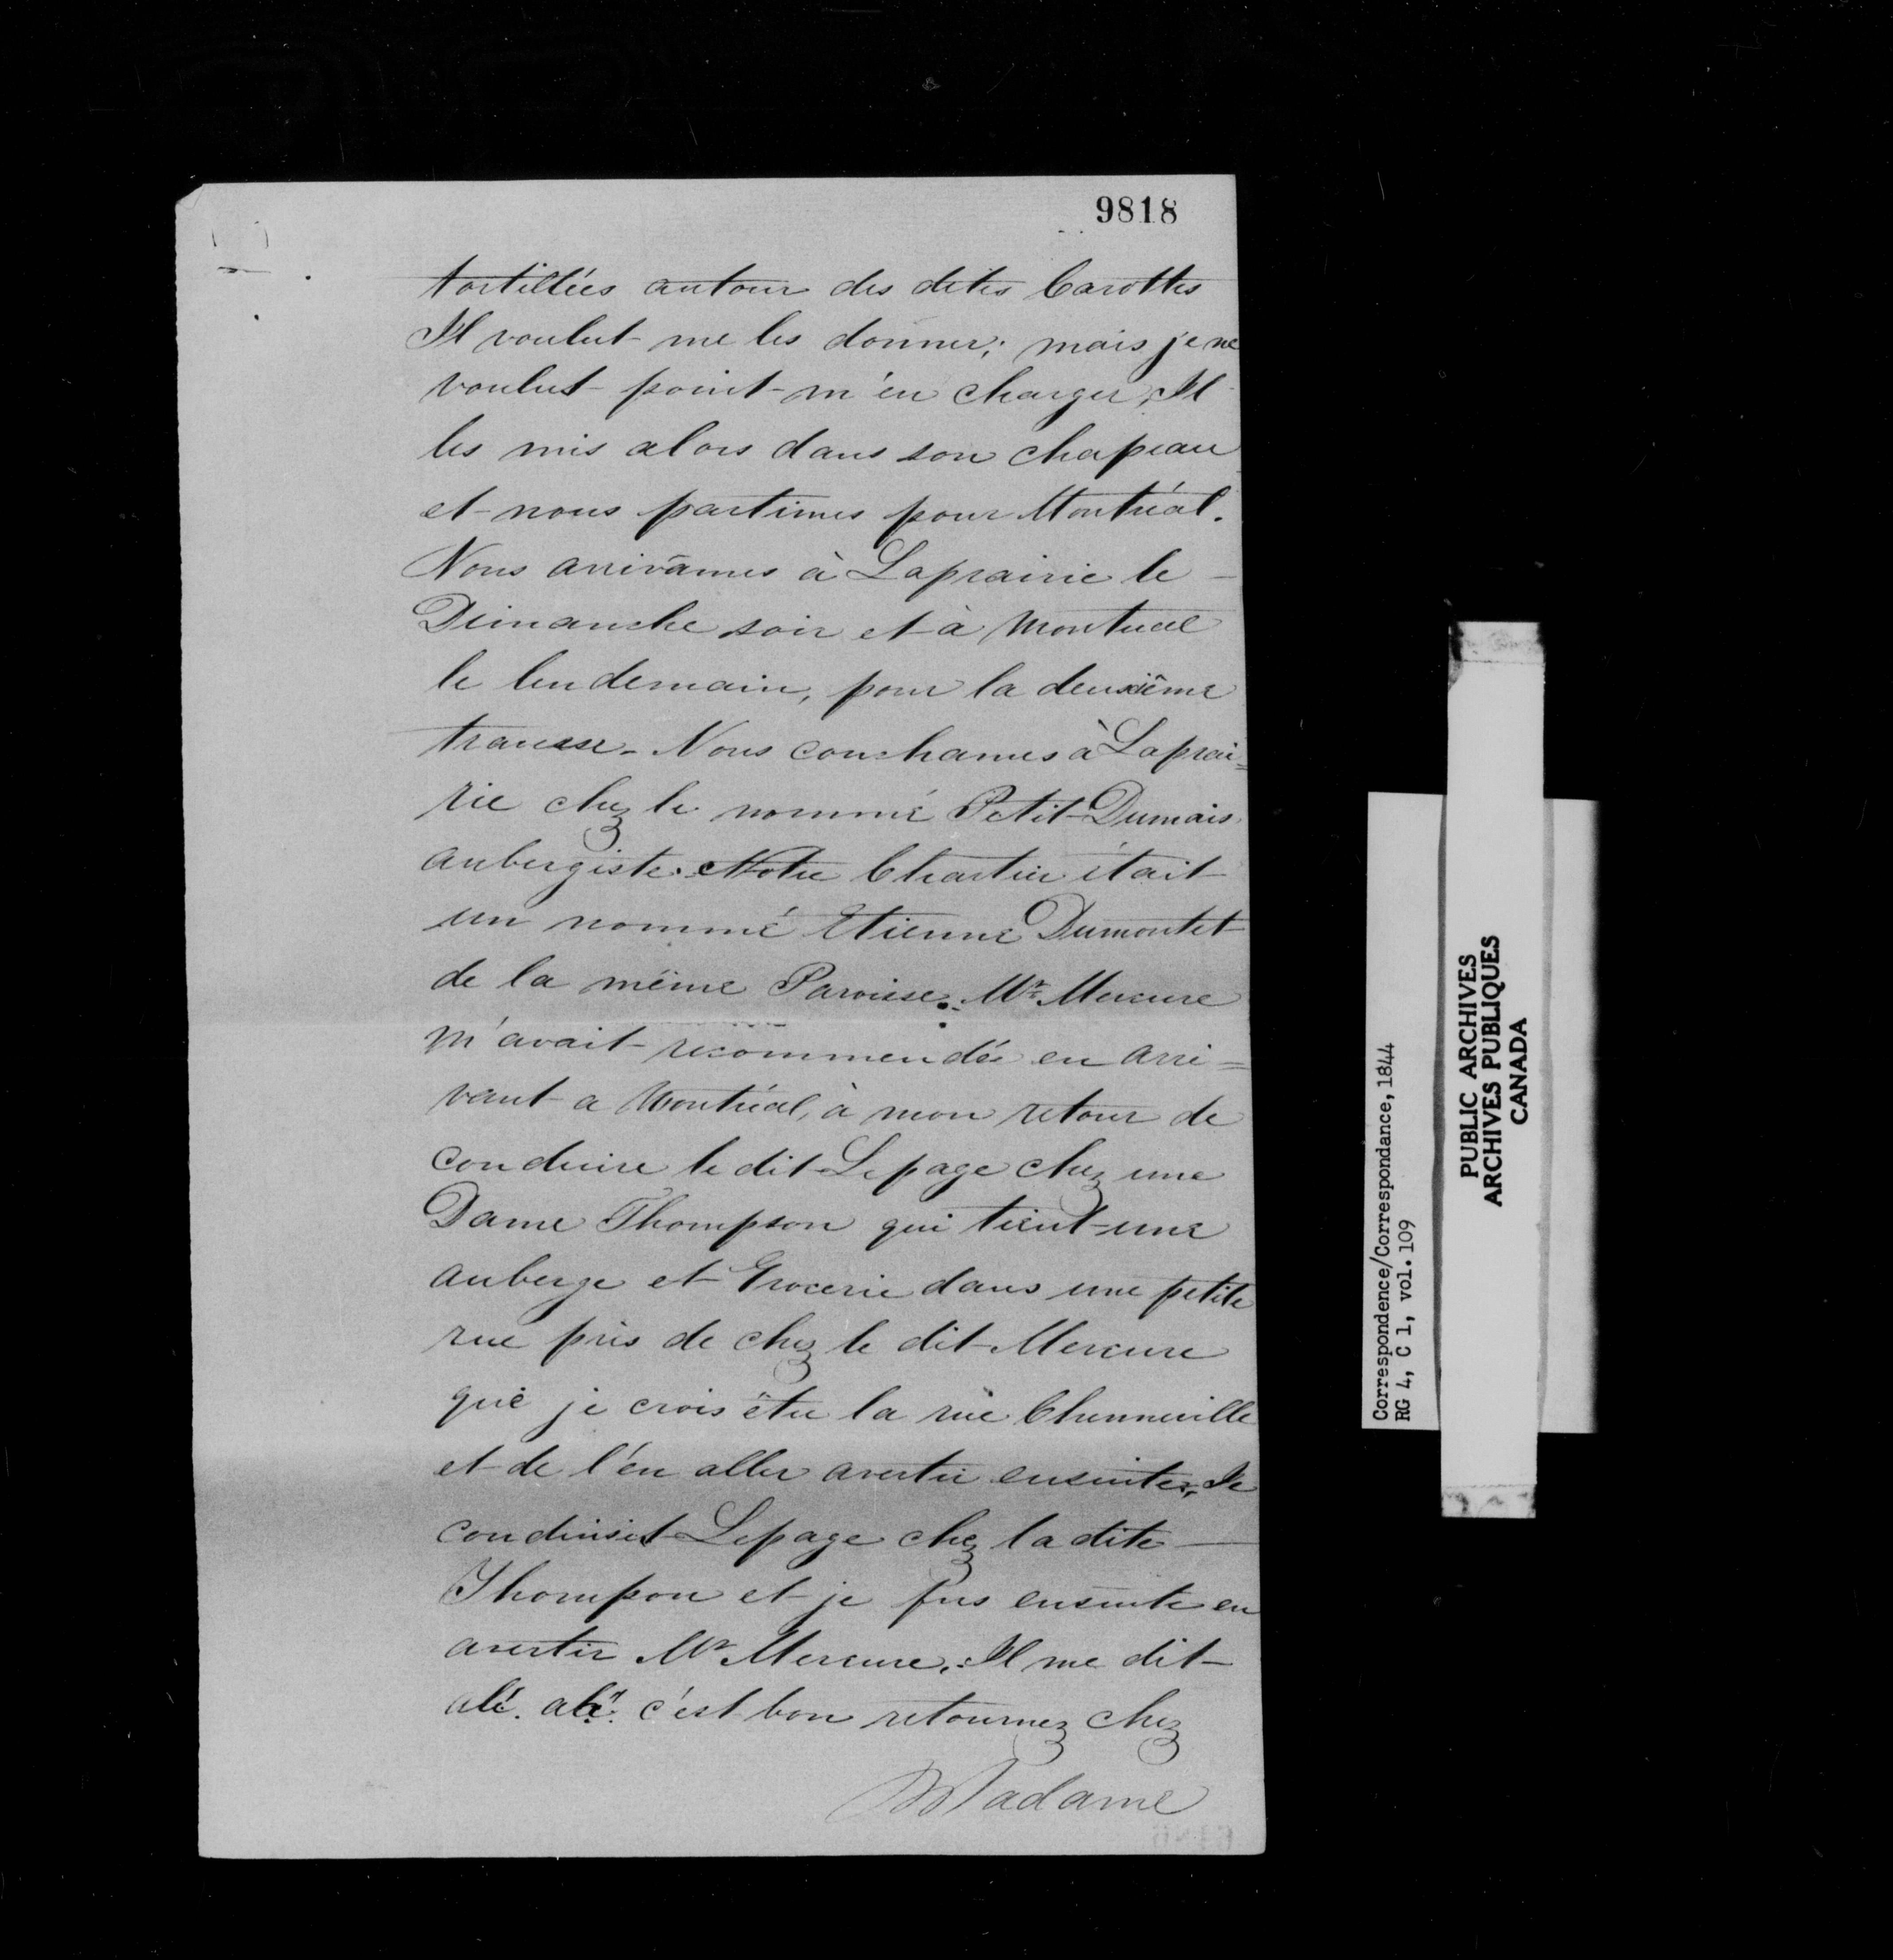 9818
tortillées autour des dites Carottes
Il voulut me les donner; mais je ne
voulus point m'en charger, Il
les mis alors dans son chapeau
et nous partimes pour Montréal.
Nous arrivâmes à Laprairie le
Dimanche soir et à Montreal
le lendemain, pour la deuxième
traverse. Nous couchames à Laprai=
rie chez le nommé Petit Dumais
aubergiste. Notre Chartier était
un nommé Etienne Dumontet
de la même Paroisse. Mr. Mercure
m'avait recommendée en arri=
vant a Montréal, à mon retour de
conduire le dit Lepage chez une
Dame Thompson qui tient une
auberge et Grocerie dans une petite
rue près de chez le dit Mercure
que je crois être la rue Chenneville
et de l'en aller avertir ensuite, Je
conduisit Lepage chez la dite
Thompson et je fus ensuite en
avertir Mr Mercure. Il me dit
c'est bon retournez chez
Madame
Correspondence/Correspondance, 1844
RG 4, C 1, vol. 109
PUBLIC ARCHIVES
ARCHIVES PUBLIQUES
CANADA